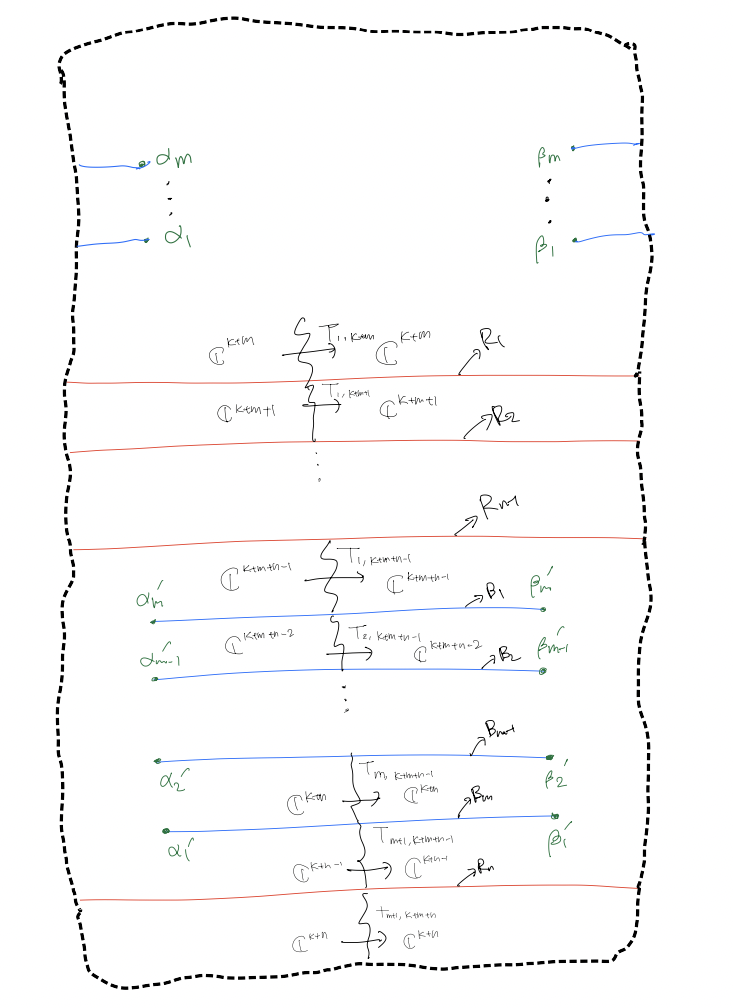 αm βm
α1 β1
ℂ^k+m T1,k+m ℂ^k+m R1
ℂ^k+m+1 T1,k+m+1 ℂ^k+m+1 R2
Rn-1
ℂ^k+m+n-1 T1,k+m+n-1 ℂ^k+m+n-1
αm′ B1 βm′
ℂ^k+m+n-2 T2,k+m+n-1 ℂ^k+m+n-2
αm-1′ B2 βm-1′
Bm-1
α2′ Tm,k+m+n-1 β2′
ℂ^k+n ℂ^k+n Bm
α1′ Tm+1,k+m+n-1 β1′
ℂ^k+n-1 ℂ^k+n-1 Rn
Tm+1,k+m+n
ℂ^k+n ℂ^k+n